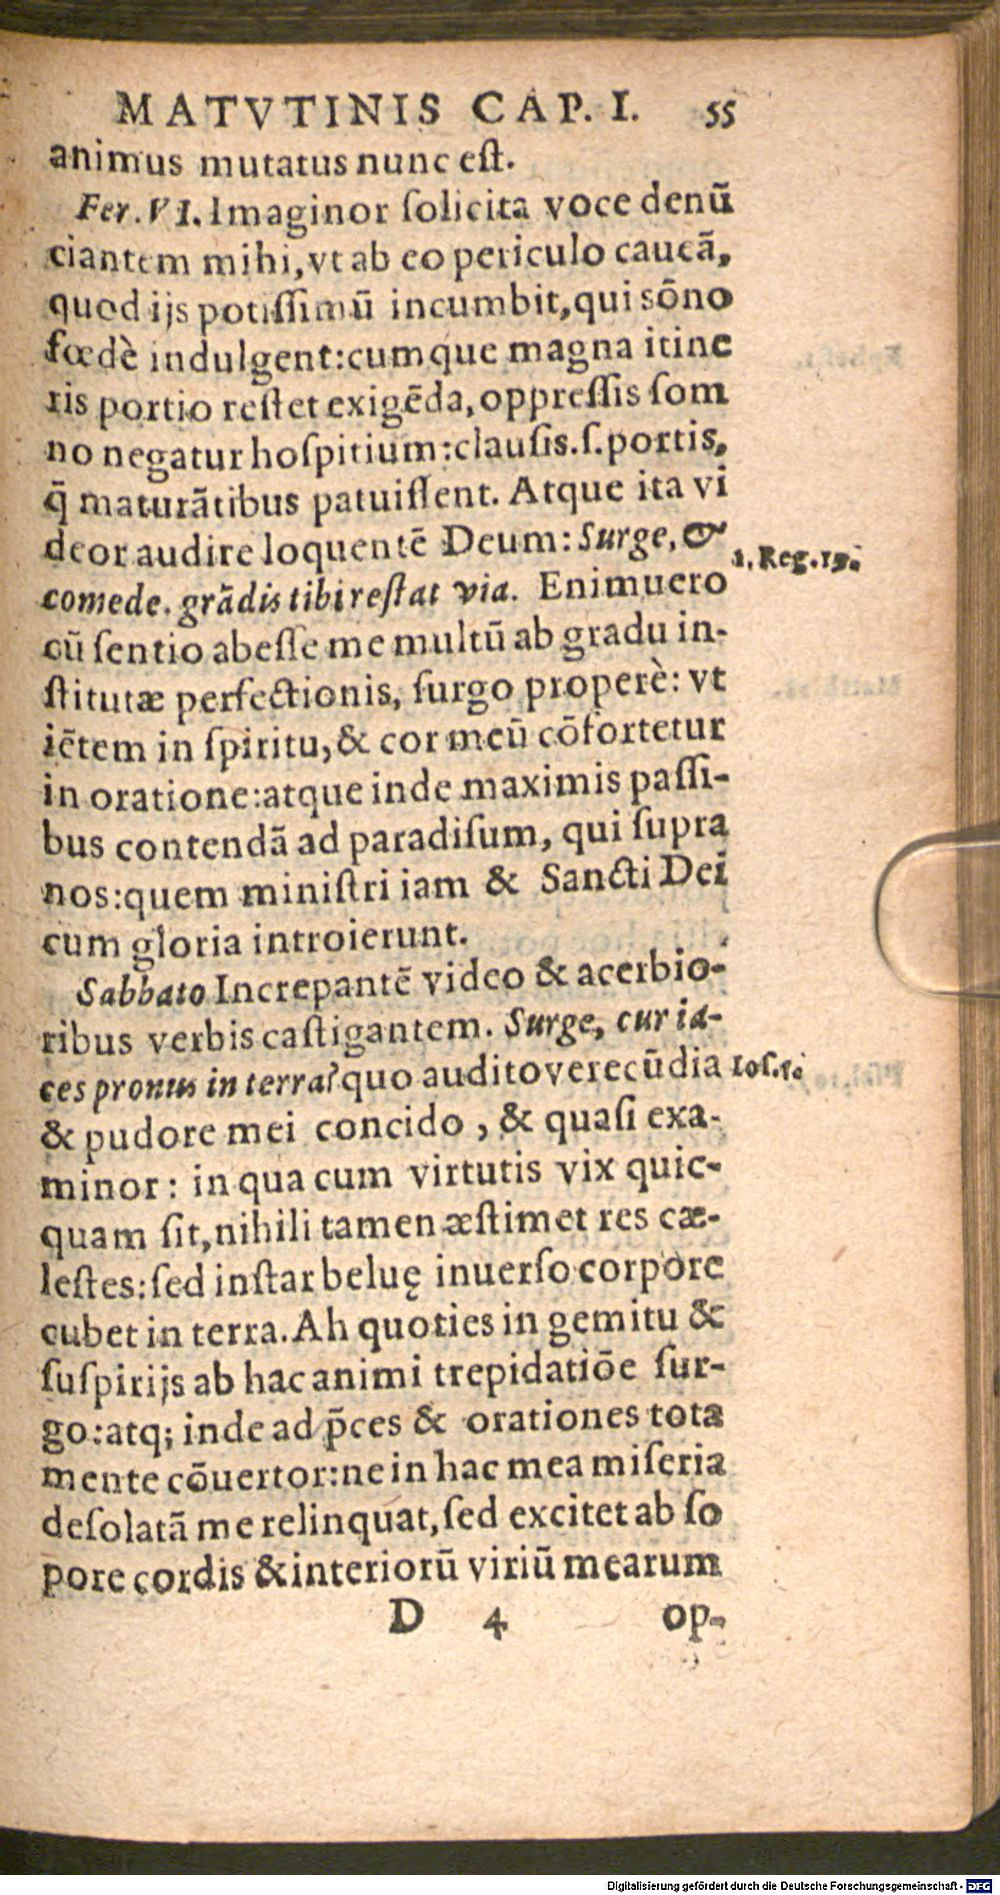 MATVTINIS CAP. I. 55
animus mutatus nunc eſt.
Fer. VI. Imaginor ſolicita voce denū
ciantem mihi, vt ab eo periculo caueā,
quod ijs potiſſimū incumbit, qui sōno
fœdè indulgent: cumque magna itine
ris portio reſtet exigēda, oppreſſis ſom
no negatur hoſpitium: clauſis. ſ. portis,
q̄ maturātibus patuiſſent. Atque ita vi
deor audire loquentē Deum: Surge, &
comede. grādis tibi reſtat via. Enimuero
1. Reg. 19.
cū ſentio abeſſe me multū ab gradu in-
ſtitutæ perfectionis, ſurgo properè: vt
iētem in ſpiritu, & cor meū cōfortetur
in oratione: atque inde maximis paſſi-
bus contendā ad paradiſum, qui ſupra
nos: quem miniſtri iam & Sancti Dei
cum gloria introierunt.
Sabbato Increpantē video & acerbio-
ribus verbis caſtigantem. Surge, cur ia-
ces pronus in terra? quo audito verecūdia
Ioſ. 7.
& pudore mei concido, & quaſi exa-
minor: in qua cum virtutis vix quic-
quam ſit, nihili tamen æſtimet res cæ-
leſtes: ſed inſtar beluę inuerſo corpore
cubet in terra. Ah quoties in gemitu &
ſuſpirijs ab hac animi trepidatiōe ſur-
go: atq; inde ad p̄ces & orationes tota
mente cōuertor: ne in hac mea miſeria
deſolatā me relinquat, ſed excitet ab ſo
pore cordis & interiorū viriū mearum
D 4 op-
Digitalisierung gefördert durch die Deutsche Forschungsgemeinschaft - DFG